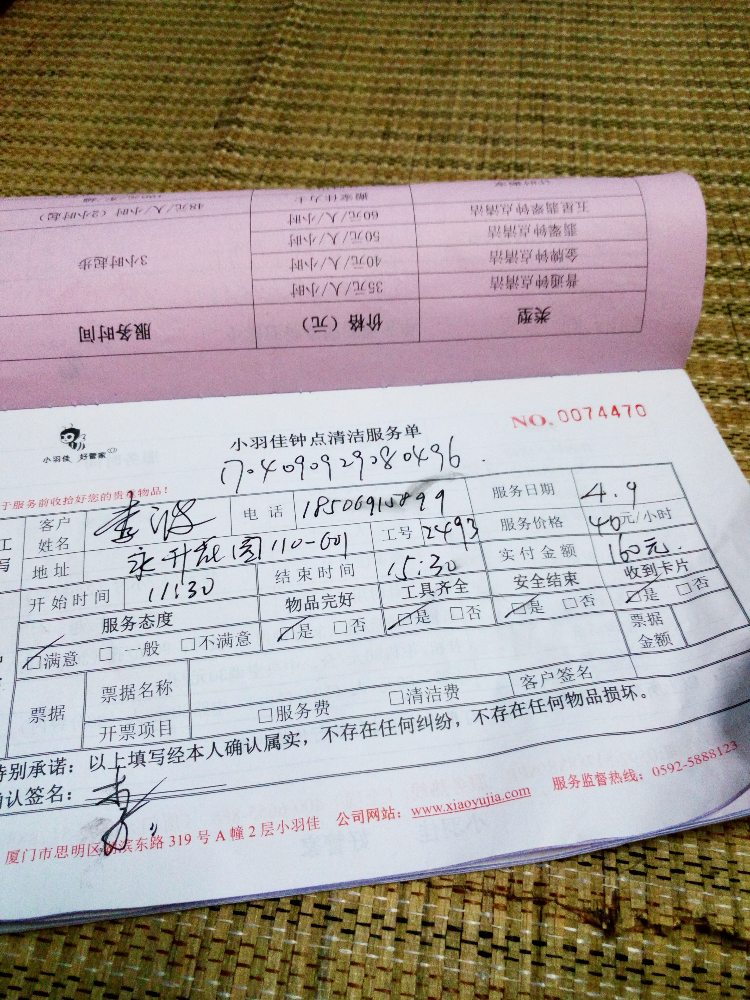 48元/人/小时(2小时起) 搬家佳力士
60元/人/小时 五星翡翠钟点清洁
50元/人/小时 翡翠钟点清洁
3小时起步 40元/人/小时 金牌钟点清洁
35元/人/小时 普通钟点清洁
服务时间 价格(元) 类型
小羽佳 好管家
小羽佳钟点清洁服务单
NO.0074470
1704090929080496
于服务前收拾好您的贵重物品!
客户姓名 电话 服务日期 4.9
地址 永升花园110-601 工号 2493 服务价格 40元/小时
开始时间 11:30 结束时间 15:30 实付金额 160元.
服务态度 物品完好 工具齐全 安全结束 收到卡片
□满意 □一般 □不满意 □是 □否 □是 □否 □是 □否 □是 □否
票据 票据名称 票据金额
开票项目 □服务费 □清洁费 客户签名
特别承诺:以上填写经本人确认属实,不存在任何纠纷,不存在任何物品损坏。
确认签名:
厦门市思明区湖滨东路319号A幢2层小羽佳 公司网站:www.xiaoyujia.com 服务监督热线:0592-5888123